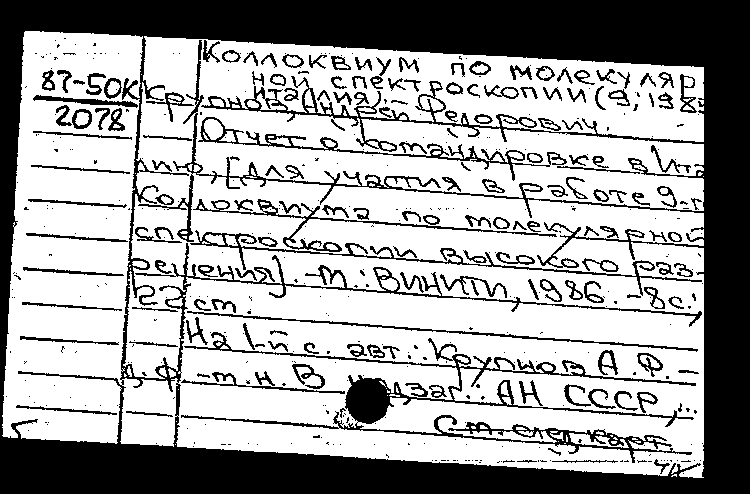 Коллоквиум по молекуляр
ной спектроскопии (9; 1985
Италия). –
87-50К
2078
Крупнов, Андрей Федорович.
Отчет о командировке в Ита
лию, [для участия в работе 9-г
Коллоквиума по молекулярной
спектроскопии высокого раз-
решения]. – М.: ВИНИТИ, 1986. – 8 с.;
22 см.
На 1-й с. авт.: Крупнов А. Ф. –
д. ф. – м. н. В надзаг.: АН СССР,...
См. след. карт.